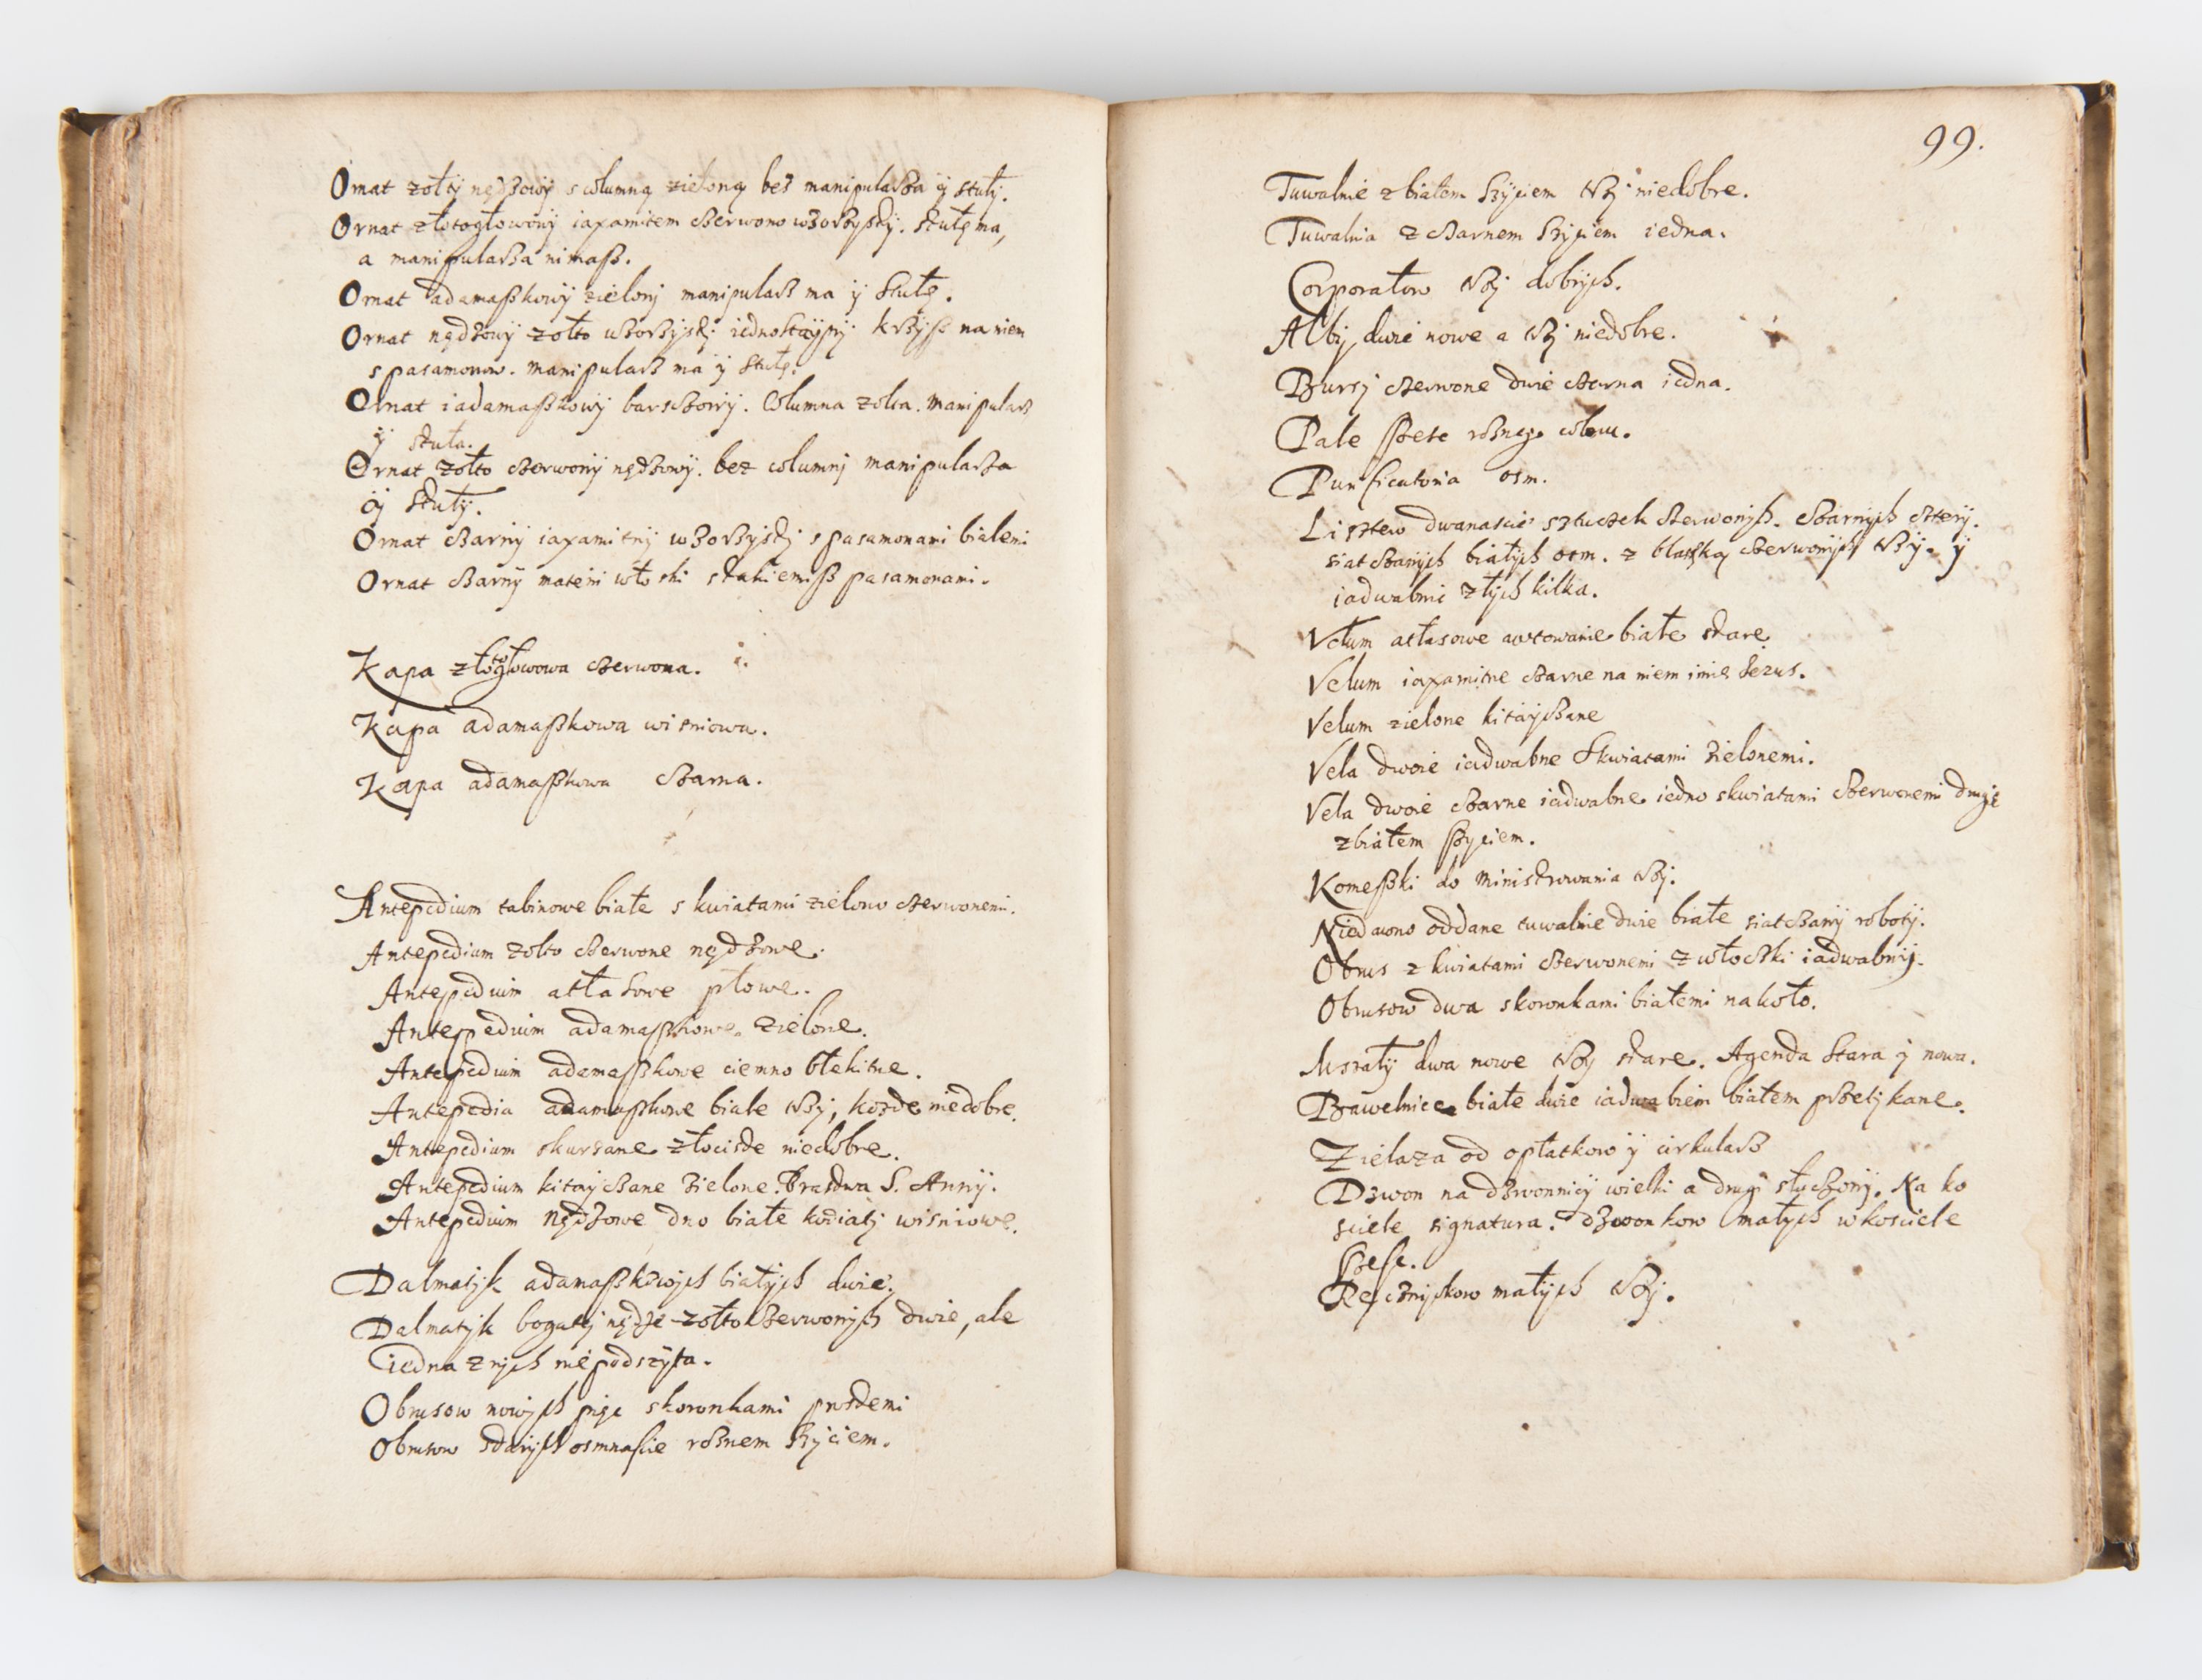 Ornat zołtÿ nędzowÿ s columną zieloną bez manipularza ÿ stułÿ.
Ornat złotogłowowÿ iaxamitem czerwono wzorzÿstÿ. stułę ma,
a manipularza nimasz.
Ornat adamaszkowÿ zielonÿ manipularz ma ÿ stułę.
Ornat nędzowÿ zołto wzorzÿstÿ iednostaÿnÿ krzÿsz na niem
s pasamonow. manipularz ma ÿ stułę.
Ornat iadamaszkowÿ barsczowÿ. Columna zolta. manipularz
ÿ stuła.
Ornat zołto czerwonÿ nędzowÿ. bez columnÿ manipularza
ÿ stułÿ.
Ornat czarnÿ iaxamitnÿ wzorzÿstÿ s pasamonami bialemi
Ornat czarnÿ materii włoski stakiemisz pasamonami.
Kapa złotogłowowa czerwona.
Kapa adamaszkowa wisniowa.
Kapa adamaszkowa czarna.
Antepedium tabinowe białe s kwiatami zielono czerwonemi.
Antepedium zolto czerwone nędzowe.
Antepedium atłasowe płowe.
Antepedium adamaszkowe zielone.
Antepedium adamaszkowe ciemno błekitne.
Antepedia adamaszkowe biale trzÿ, kozde niedobre.
Antepedium skurzane złociste niedobre.
Antepedium kitaÿczane zielone. Bractwa S. Annÿ.
Antepedium Nędzowe dno białe kwiatÿ wisniowe.
Dalmatÿk adamaszkowÿch białÿch dwie.
Dalmatÿk bogatÿ nędze zołto czerwonÿch dwie, ale
iedna z nÿch nie podszÿta.
Obrusow nowÿch pięc skoronkami prostemi
Obrusow starÿch osmnascie roznem szÿciem.
99.
Tuwalnie z białem szÿciem trzÿ niedobre.
Tuwalnia z czarnem szÿciem iedna.
Corporałow trzÿ dobrÿch.
Albÿ dwie nowe a trzÿ niedobre.
Bursÿ czerwone dwie czarna iedna.
Pale szese roznego coloru.
Purificatoria osm.
Lisztew dwanascie sztuczek czerwonÿch. Czarnÿch cterÿ.
siatczanÿch białÿch osm. z blaszką czerwonÿch trzÿ. ÿ
iadwabnie złÿch kilka.
Velum atłasowe awtowanie białe stare
Velum iaxamitne czarne na niem imie Iezus.
Velum zielone kitaÿczane
Vela dwoie iedwabne skwiatami zielonemi.
Vela dwoie czarne iadwabne iedno skwiatami czerwonemi drugie
z białem szÿciem.
Komeszki do ministrowania trzÿ.
Niedawno oddane tuwalnie dwie białe siatczanÿ robotÿ.
Obrus z kwiatami czerwonemi z włoczki iadwabnÿ.
Obrusow dwa skoronkami białemi nakoło.
Msrałÿ dwa nowe trzÿ stare. Agenda stara ÿ nowa.
Bawelnice białe dwie iadwabiem białem przetÿkane.
Zielaza od opłatkow ÿ cirkularz
Dzwon na dzwonnicÿ wielki a drugi stłuczonÿ. Na ko
sciele signatura. dzwonkow małÿch w kosciele
szesc.
Ręcznÿkow małÿch trzÿ.